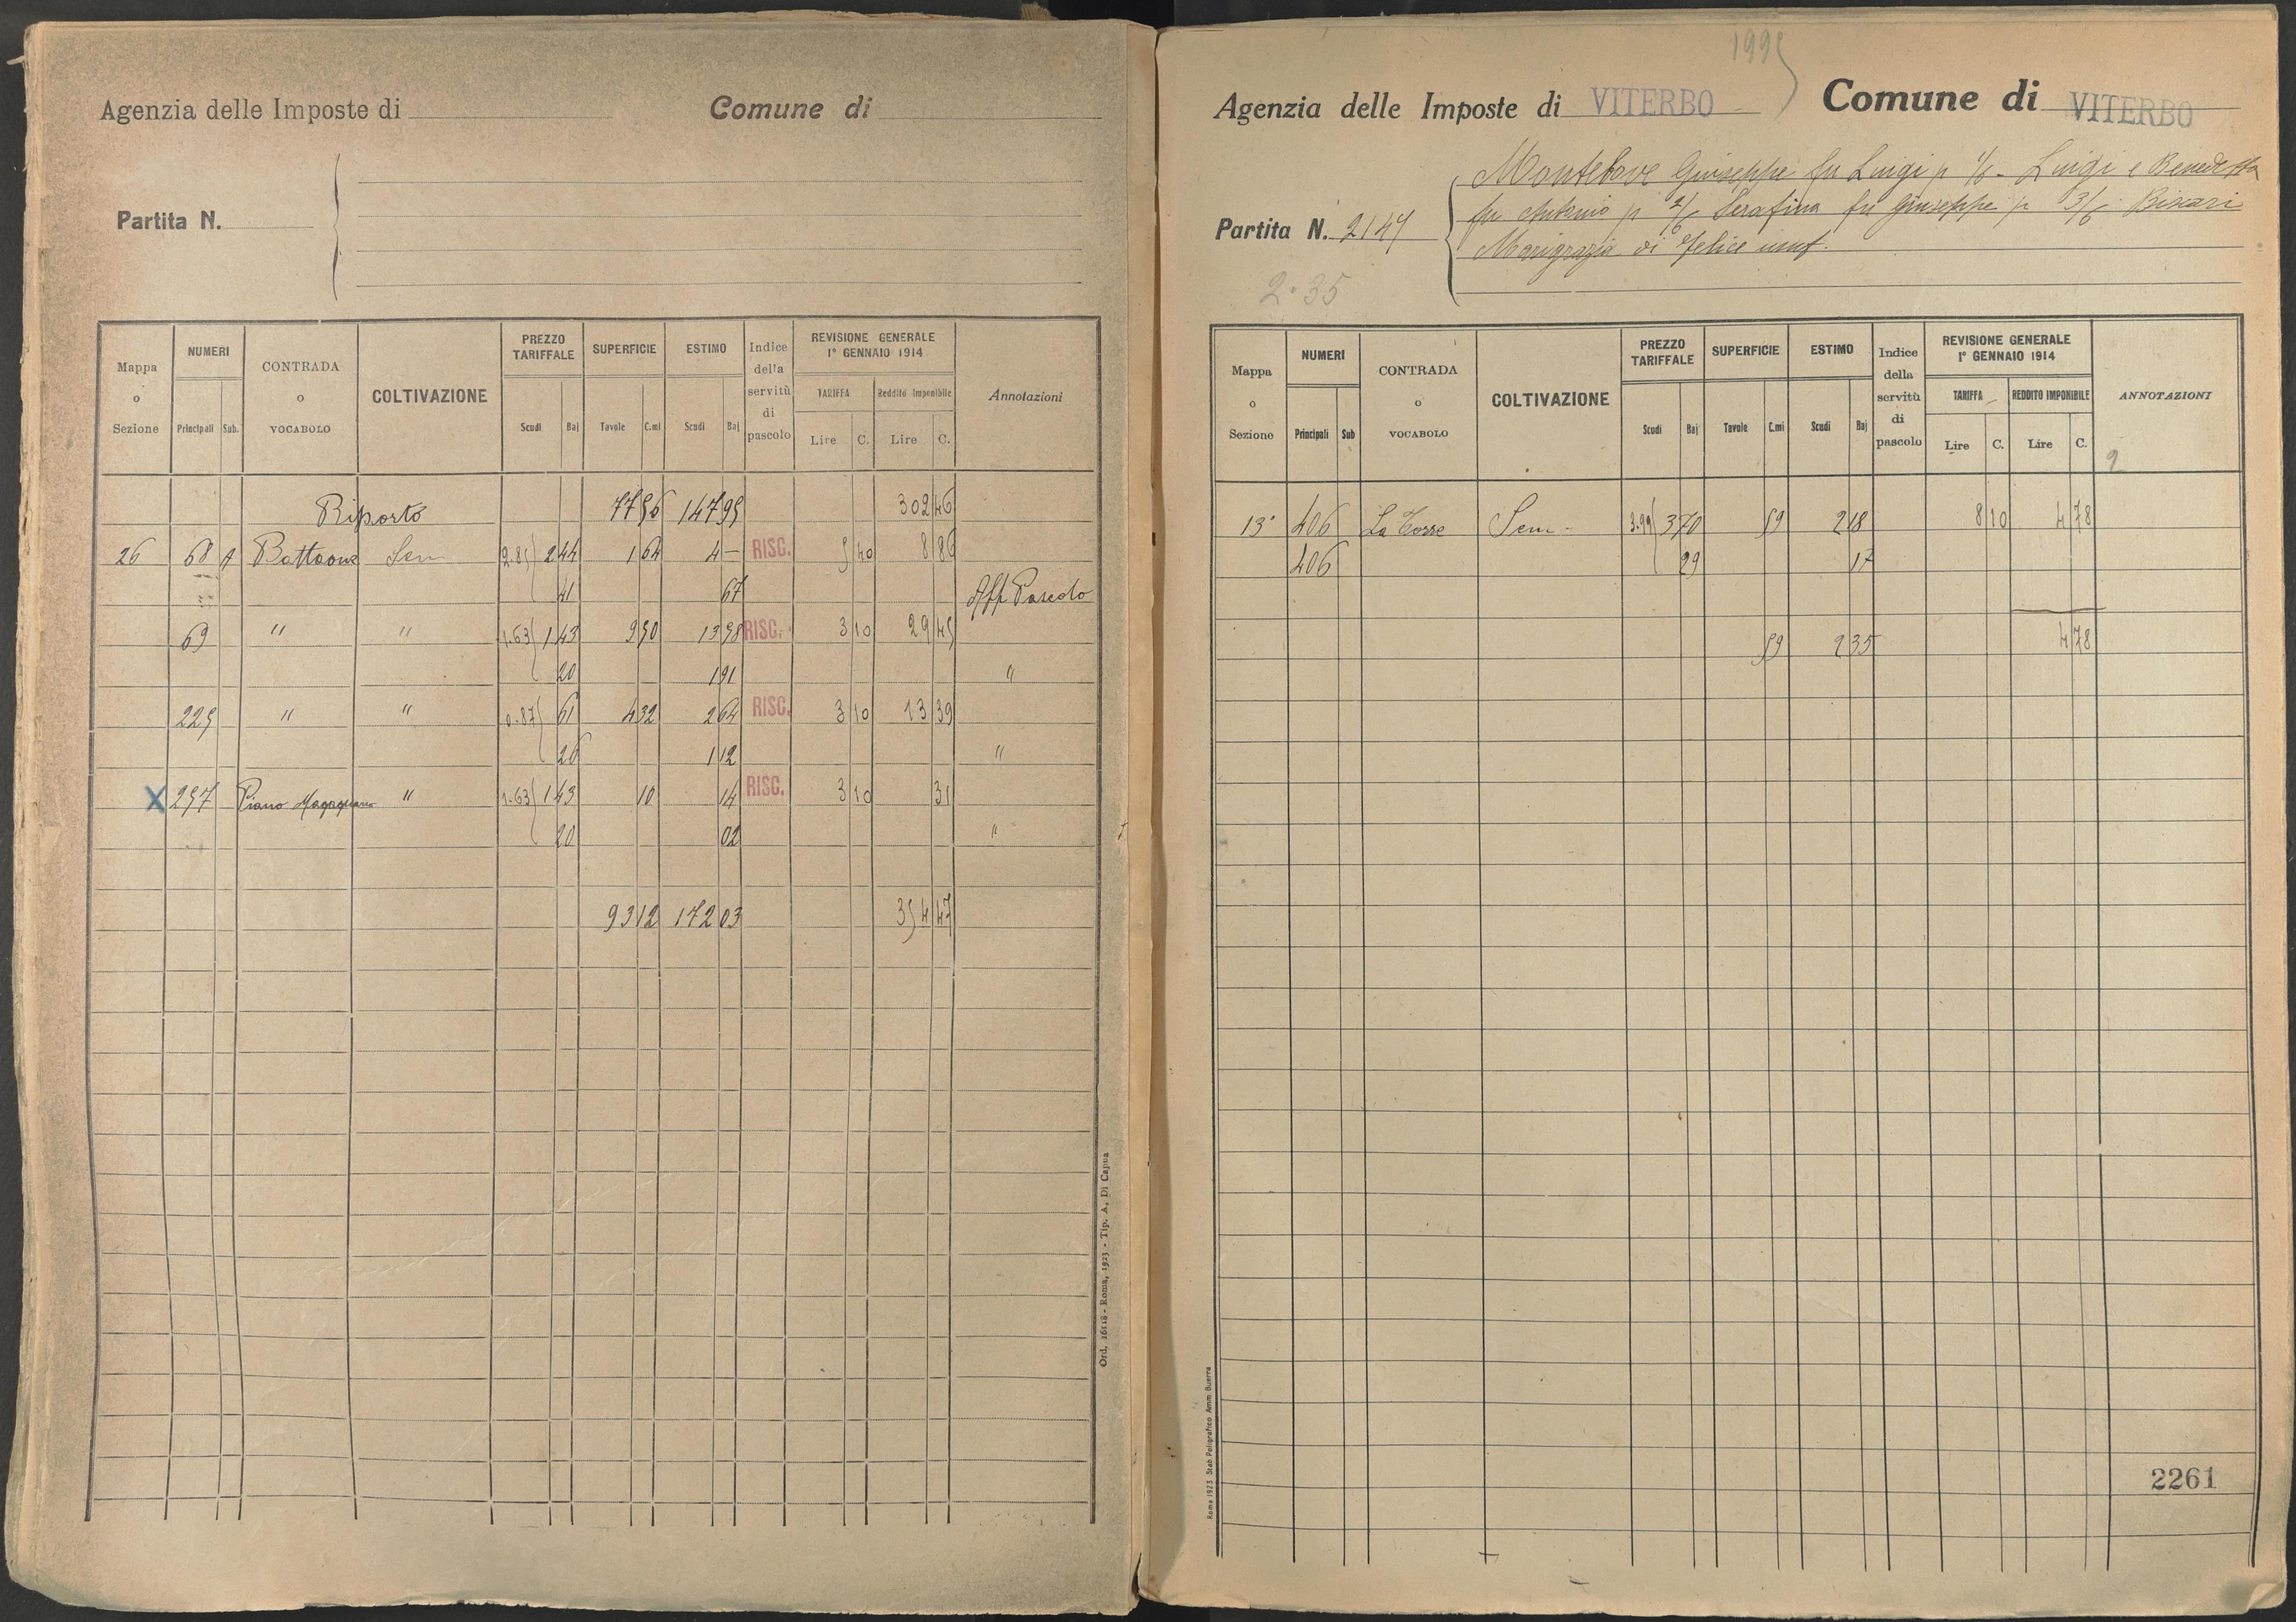 Agenzia delle Imposte di Comune di
Partita N.
Mappa o Sezione NUMERI Principali Sub. CONTRADA o VOCABOLO COLTIVAZIONE PREZZO TARIFFALE Scudi Baj SUPERFICIE Tavole C.mi ESTIMO Scudi Baj Indice della servitù di pascolo REVISIONE GENERALE 1° GENNAIO 1914 TARIFFA Lire C. Reddito Imponibile Lire C. Annotazioni
Riporto 77 56 147 95 302 46
26 68 A Sem 2.85 2 44 1 64 4 — RISC. 5 40 8 86
41 67 Aff Pascolo
69 " " 1.63 1 43 9 50 13 58 RISC. 3 10 29 45
20 1 91 "
225 " " 0.87 61 4 32 2 64 RISC. 3 10 13 39
26 1 12 "
X 257 Piano " 1.63 1 43 10 14 RISC. 3 10 31
20 02 "
93 12 172 03 354 47
Ord. 16118 - Roma, 1923 - Tip. A. Di Capua
1995
Agenzia delle Imposte di VITERBO Comune di VITERBO
Partita N. 2147
Montebove Giuseppe fu Luigi p 1/6 - Luigi e Benedetta
fu Antonio p 2/6 Serafina fu Giuseppe p 3/6 Biscari
Mariagrazia di Felice usuf.
2.35
Mappa o Sezione NUMERI Principali Sub CONTRADA o VOCABOLO COLTIVAZIONE PREZZO TARIFFALE Scudi Baj SUPERFICIE Tavole C.mi ESTIMO Scudi Baj Indice della servitù di pascolo REVISIONE GENERALE 1° GENNAIO 1914 TARIFFA Lire C. REDDITO IMPONIBILE Lire C. ANNOTAZIONI
2
13° 406 La Torre Sem - 3.99 3 70 59 2 18 8 10 4 78
406 29 17
59 2 35 4 78
Roma 1923 Stab Poligrafico Amm. Guerra
2261